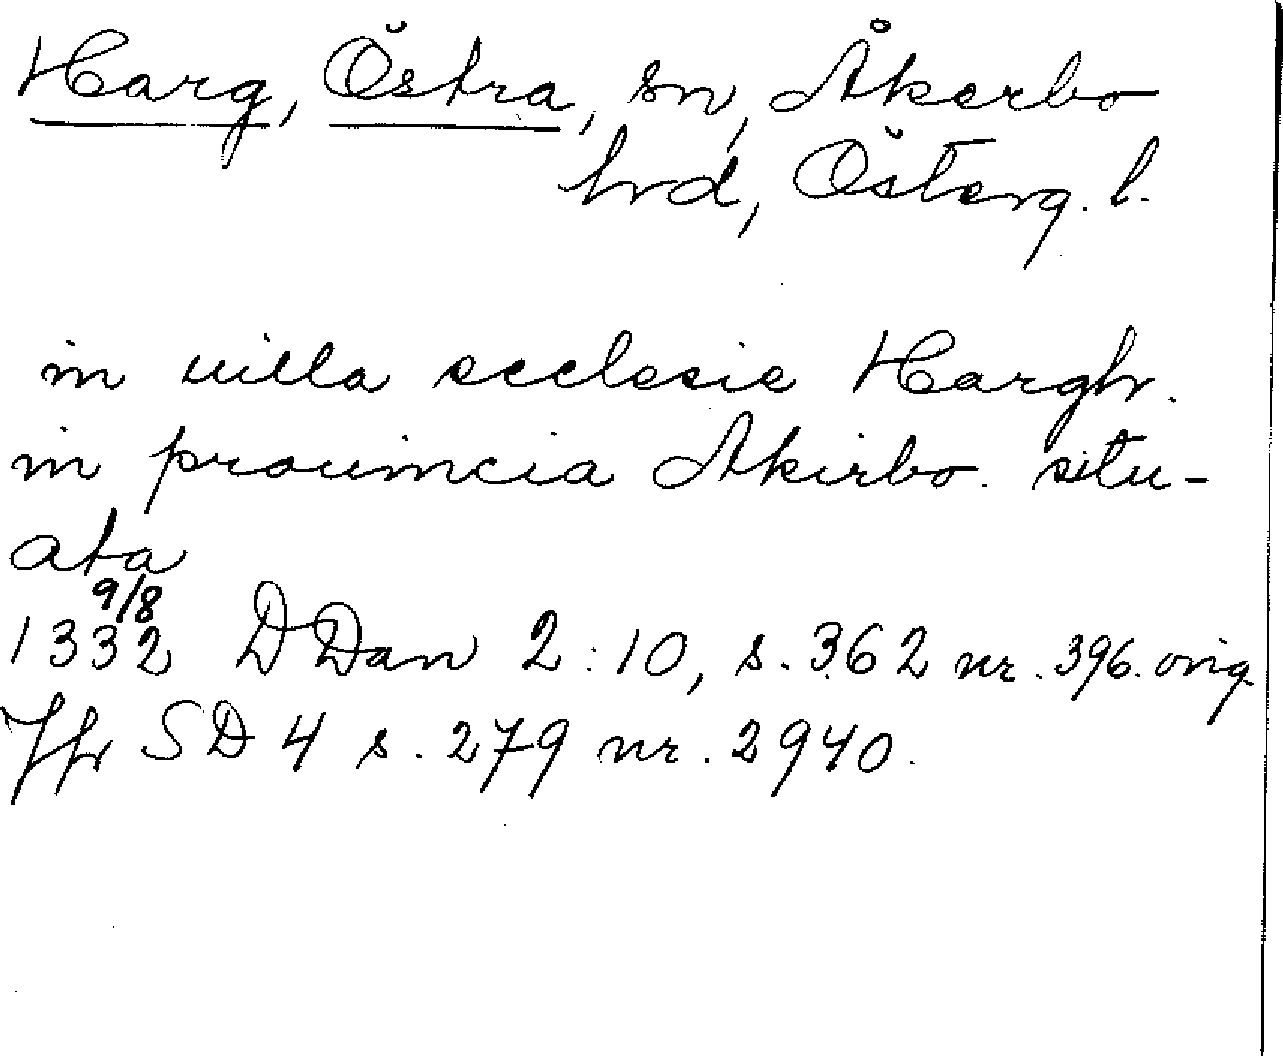 Harg, Östra, sn, Åkerbo
hrd, Österg. l.
in uilla ecclesie Hargh.
in prouincia Akirbo. situ-
ata
9/8
1332 D Dan 2:10, s. 362 nr. 396. orig.
Jfr SD 4 s. 279 nr. 2940.